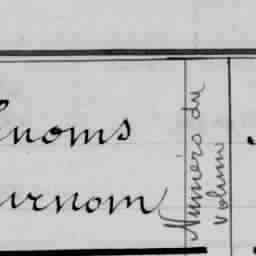 énoms
urnom
Numéro du
Volume